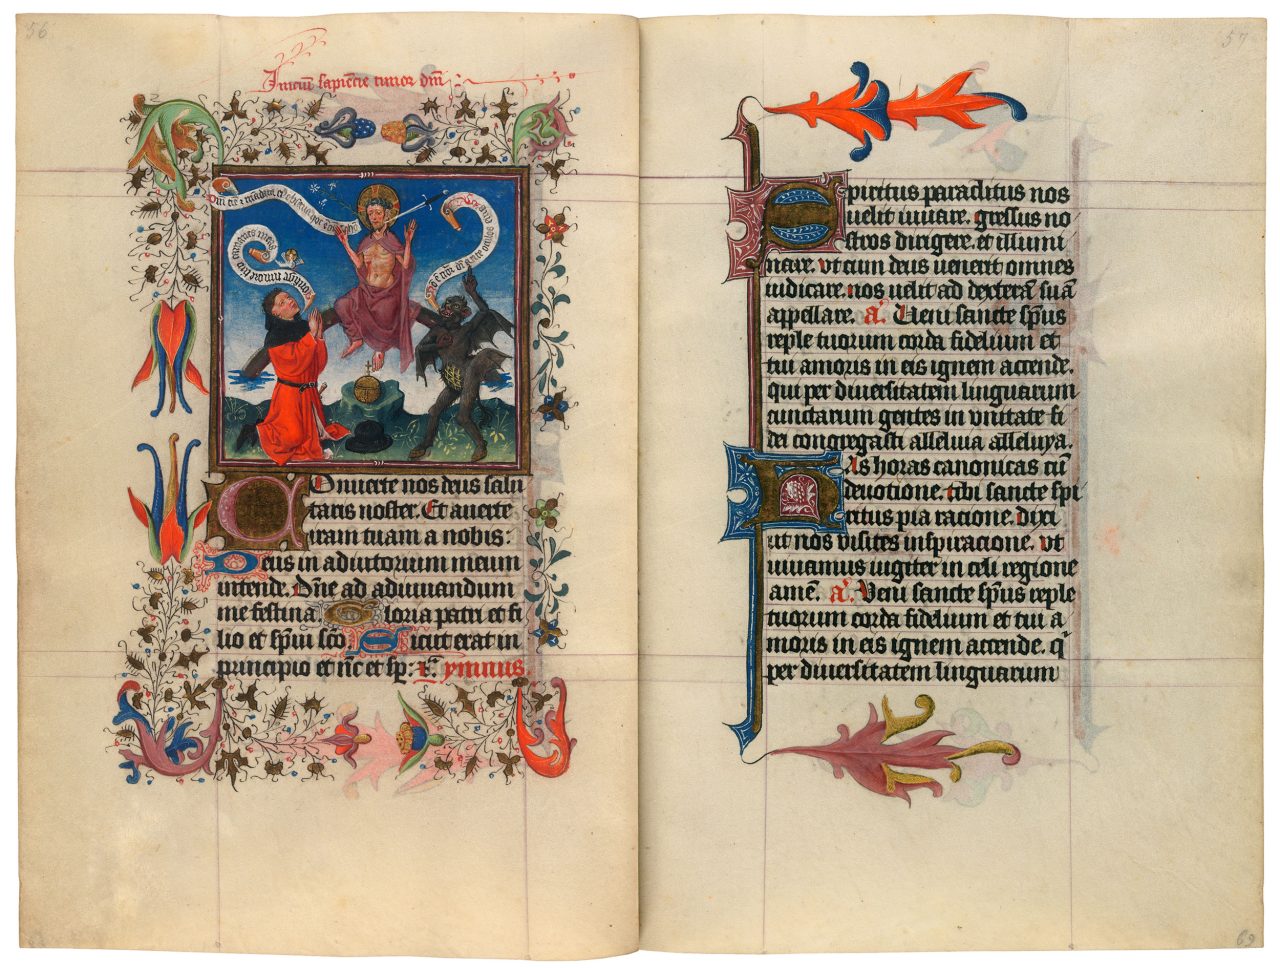 56
Iniciu͞ sapie͞cie timor dn͞i
Onuerte nos deus salu
taris noster. Et auerte
iram tuam a nobis:
Deus in adiutorium meum
intende. Dn͞e ad adiuuandum
me festina. Gloria patri et fi
lio et sp͞ui sc͞o Sicut erat in
principio et nc͞ et sp: Ymnus
57
Spiritus paraclitus nos
uelit iuuare. gressus no
stros dirigere. et illumi
nare. vt cum deus uenerit omnes
iudicare. nos uelit ad dextera͞ sua͞
appellare. a͞. Veni sancte sp͞us
reple tuorum corda fidelium et
tui amoris in eis ignem accende.
qui per diuersitatem linguarum
cunctarum gentes in vnitate fi
dei congregasti alleluia alleluya.
Has horas canonicas cu͞
deuotione. tibi sancte spi
ritus pia ratione. dixi
ut nos visites inspiracione. vt
uiuamus iugiter in celi regione
ame͞. a͞. Veni sancte sp͞us reple
tuorum corda fidelium et tui a
moris in eis ignem accende. q͞
per diuersitatem linguarum
69